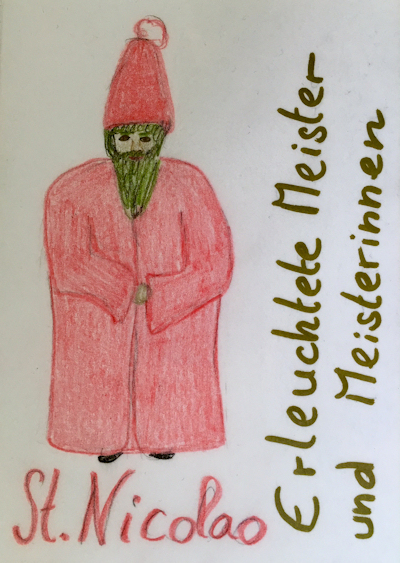 St. Nicolao
Erleuchtete Meister
und Meisterinnen